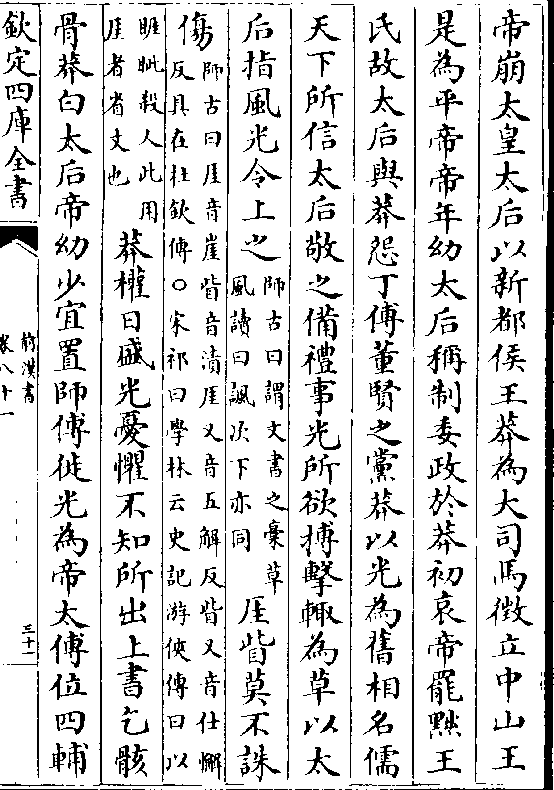 帝崩太皇太后以新都侯王莽為大司馬徵立中山王
是為平帝帝年幼太后稱制委政於莽初哀帝罷黜王
氏故太后與莽怨丁傅董賢之黨莽以光為舊相名儒
天下所信太后敬之備禮事光所欲搏擊輙為草以太
后指風光令上之
師古曰謂文書之稾草
風讀曰諷次下亦同
厓眥莫不誅
傷
師古曰厓音崖眥音漬厓又音五解反眥又音仕懈
反具在杜欽傳○宋祁曰學林云史記游俠傳曰以
睚眦殺人此用
厓者省文也
莽權日盛光憂懼不知所出上書乞骸
骨莽白太后帝幼少宜置師傅徙光為帝太傅位四輔
欽定四庫全書
前漢書
卷八十一
三十